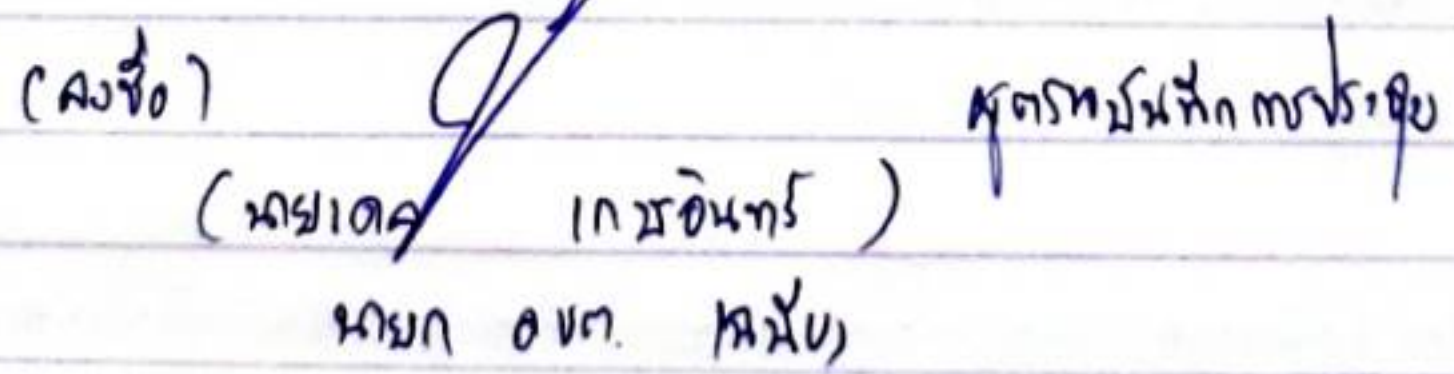 (ลงชื่อ) ผู้ตรวจบันทึกการประชุม
(นายเดช เกษอินทร์)
นายก อบต. เฉนียง